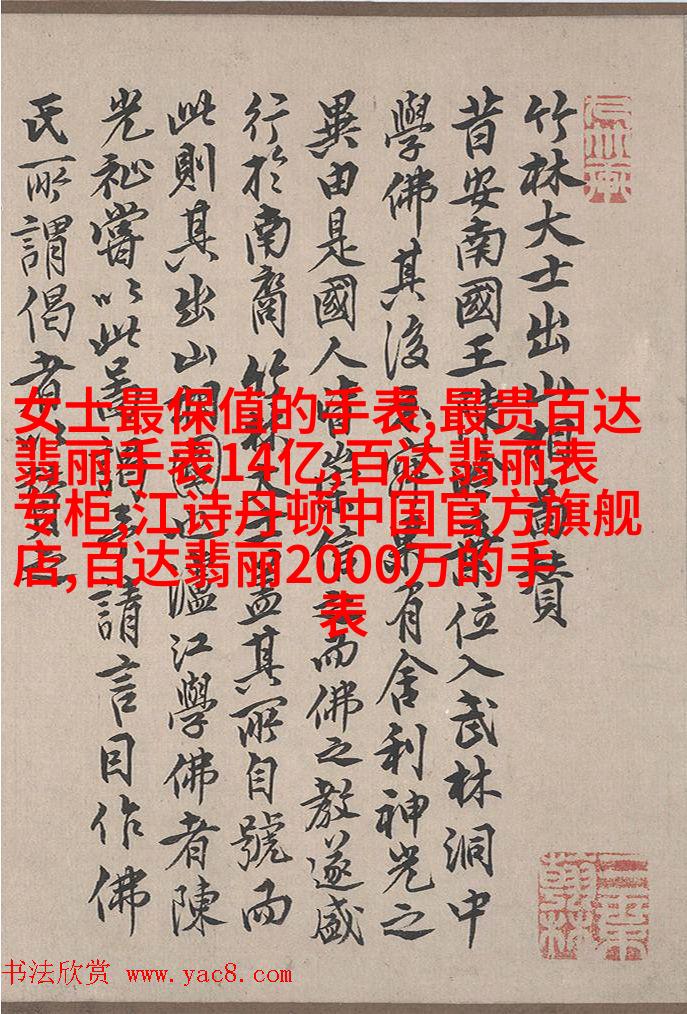 竹林大士出山相圖贊
昔安南國王位入武林洞中
學佛其後果有舍利神光之
異由是國人皆崇信而佛之教遂盛
行於南裔竹林大士蓋其所自號而
此則其出山相圖也溫江學佛者陳
光祉嘗以此請言目作佛
氏所謂偈者
女士最保值的手表,最贵百达
翡丽手表14亿,百达翡丽表
专柜,江诗丹顿中国官方旗舰
店,百达翡丽2000万的手
表
书法欣赏 www.yac8.com